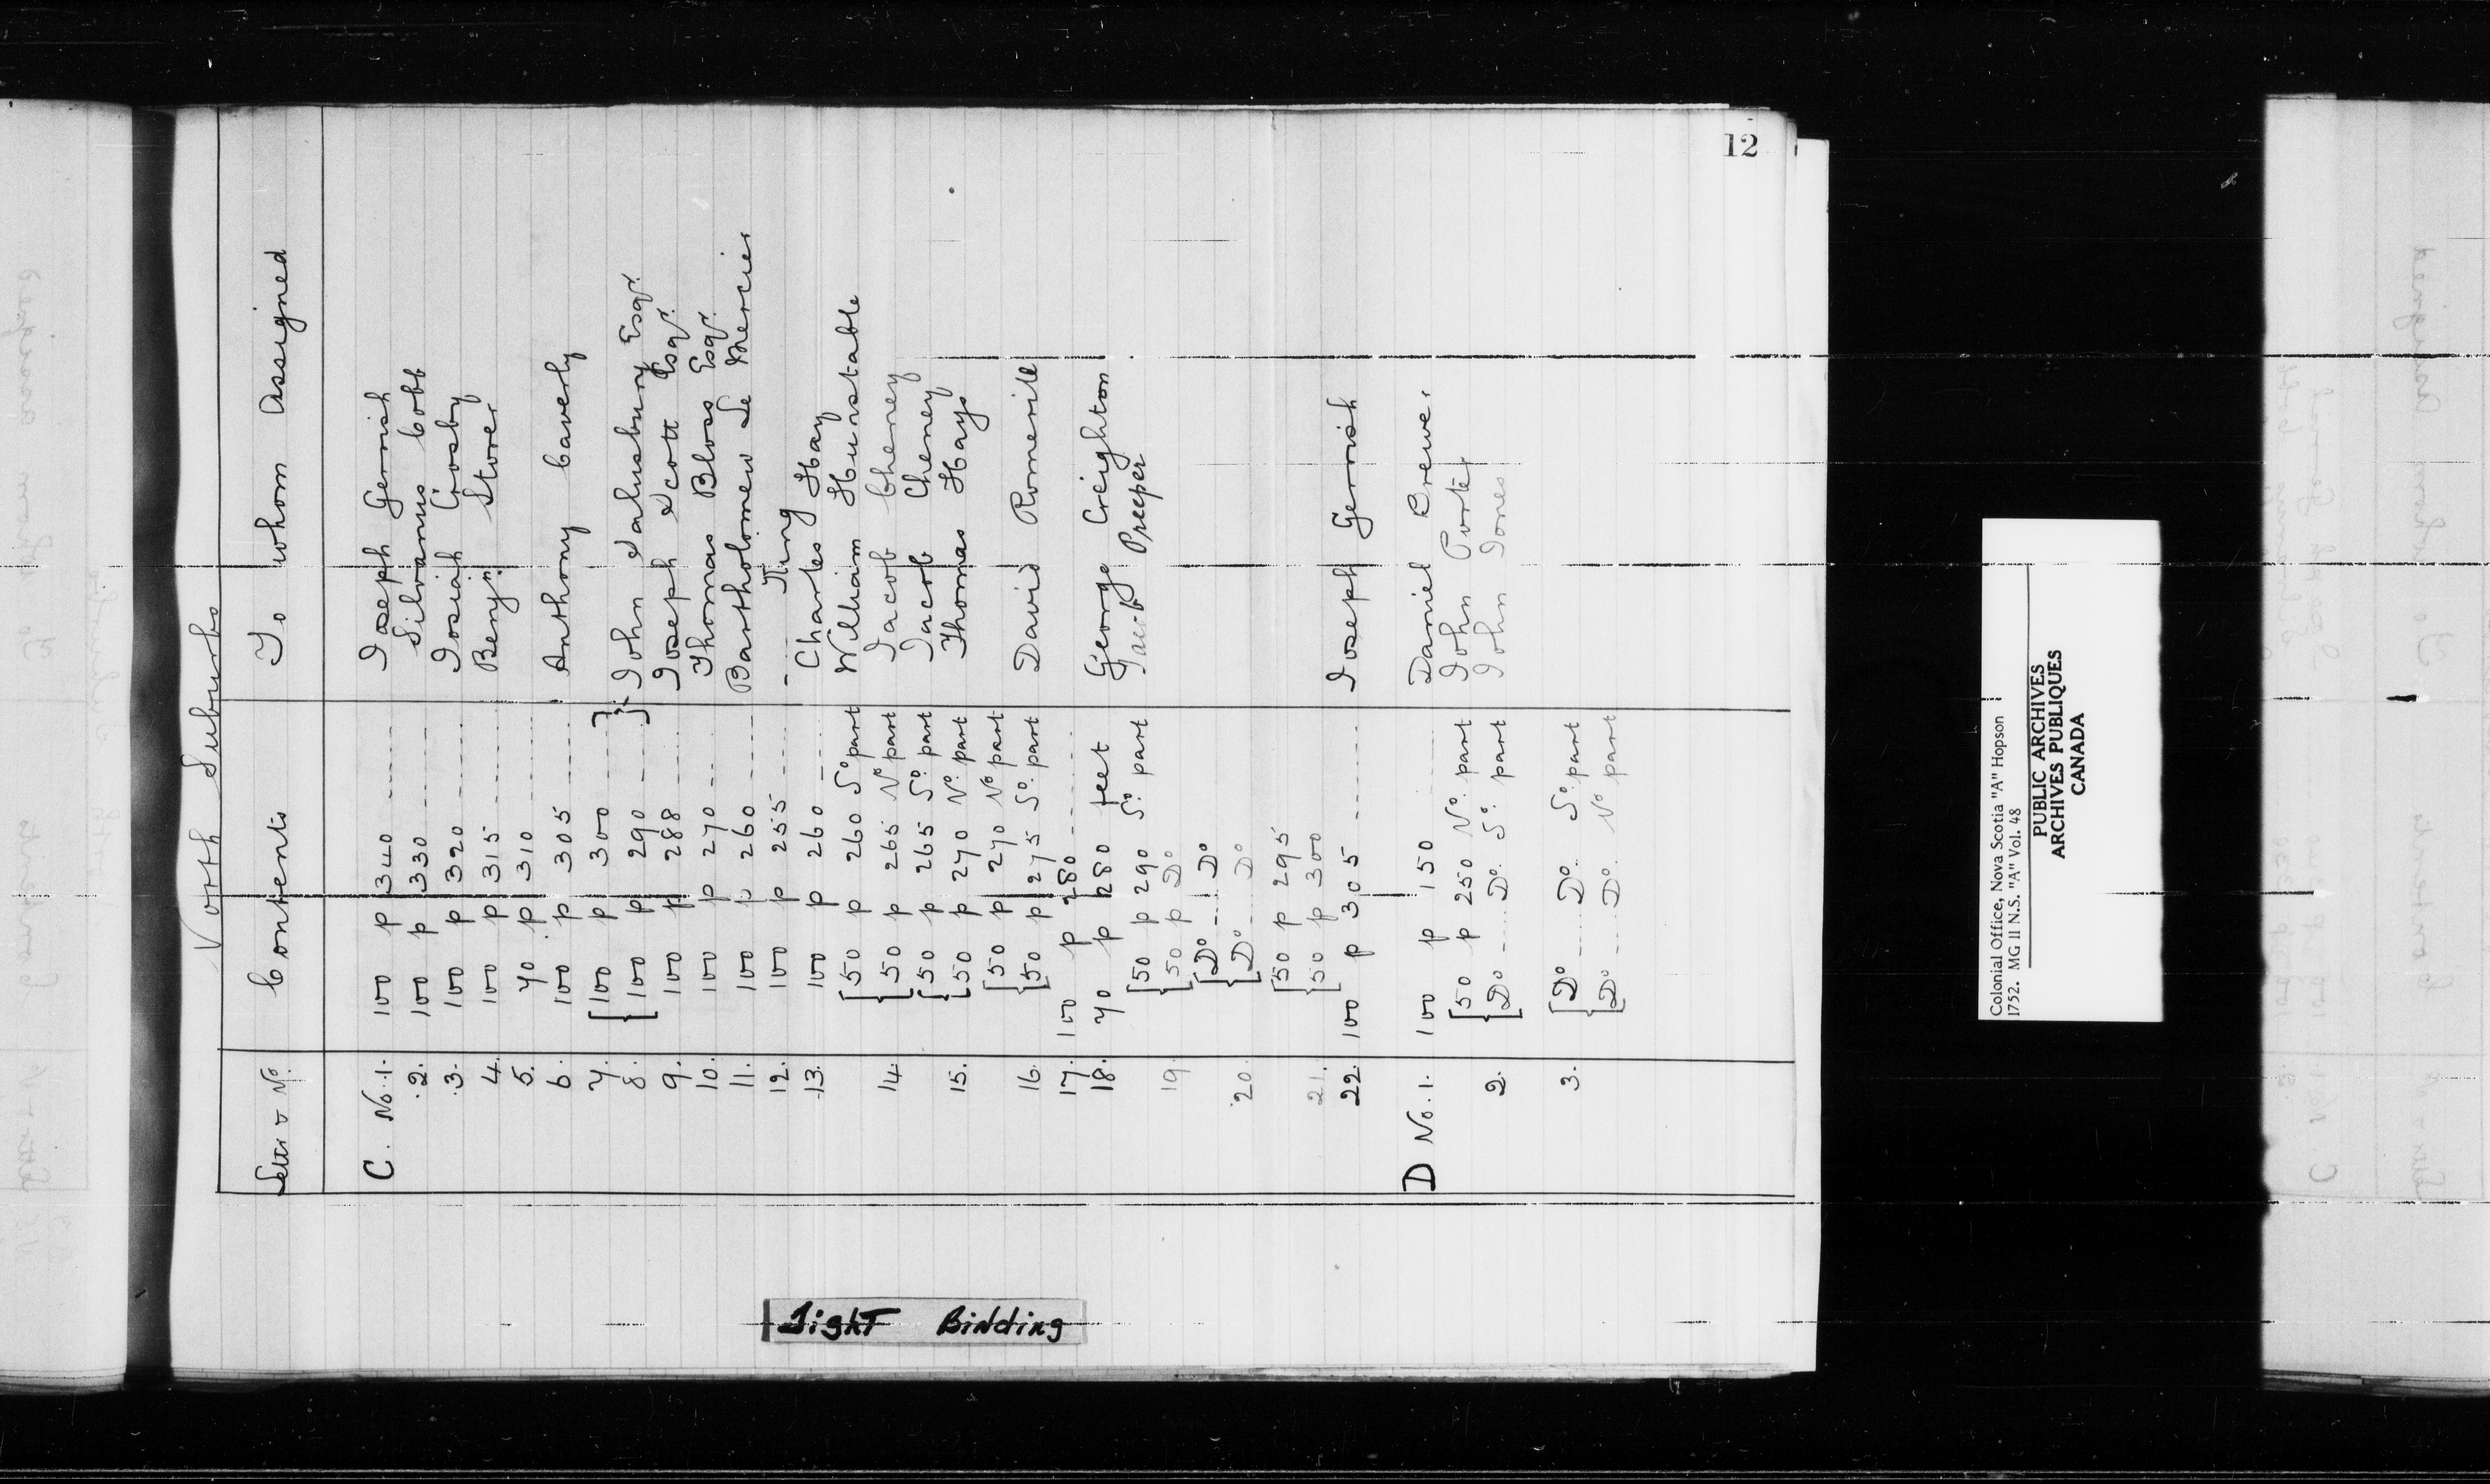 12
North Suburbs
Letter & No. Contents To whom Assigned
C. No. 1. 100 p 340 ------ Joseph Gerrish
2. 100 p 330 ------ Silvanus Cobb
3. 100 p 320 ------ Josiah Crosby
4. 100 p 315 ------ Benjn. Stover
5. 70 p 310 ------
6. 100 p 305 ------ Anthony Caverly
7. [100 p 300 --- }
8. {100 p 290 --- } John Salusbury Esqr.
9. 100 p 288 ---- Joseph Scott Esqr.
10. 100 p 270 -- Thomas Bloss Esqr.
11. 100 p 260 ---- Bartholomew Le Mercier
12. 100 p 255 ---- ---- King
13. 100 p 260 ---- Charles Hay
[50 p 260 So part William Hunstable
14. {50 p 265 No part Jacob Cheney
[50 p 265 So. part Jacob Cheney
15. {50 p 270 No. part Thomas Hays
[50 p 270 No part
16. {50 p 275 So. part David Romerill
17. 100 p 280 -----
18. 70 p 280 feet George Creighton
[50 p 290 So. part Preeper
19. {50 p Do
[Do --- Do
20. {Do --- Do
[50 p 295
21. {50 p 300
22. 100 p 305 ------ Joseph Gerrish
D No. 1. 100 p 150 ---- Daniel Brewer
[50 p 250 No. part John Porter
2. {Do ---- Do. So. part John Jones
[Do ---- Do. So. part
3. {Do ---- Do. No part
Tight Binding
Colonial Office, Nova Scotia "A" Hopson
1752. MG 11 N.S. "A" Vol. 48
PUBLIC ARCHIVES
ARCHIVES PUBLIQUES
CANADA